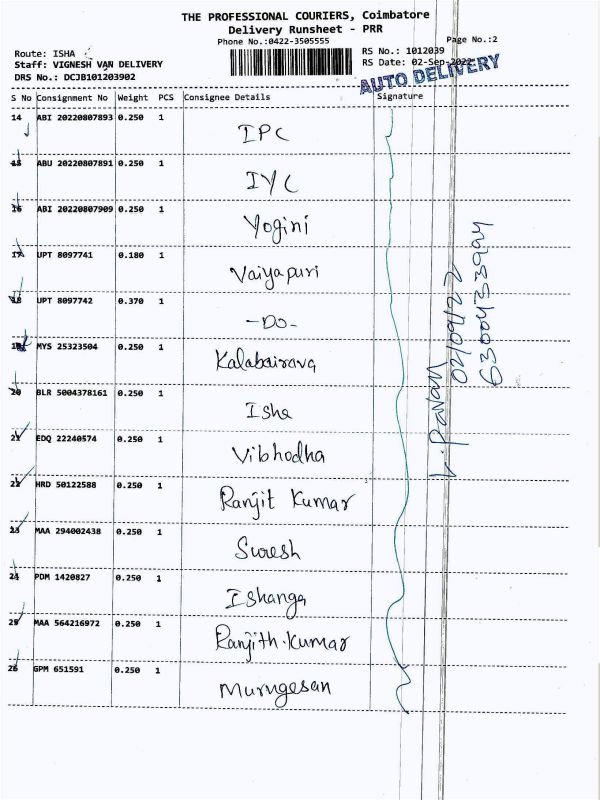 THE PROFESSIONAL COURIERS, Coimbatore
Delivery Runsheet - PRR
Phone No.:0422-3505555
Page No.:2
Route: ISHA
RS No.: 1012039
Staff: VIGNESH VAN DELIVERY
RS Date: 02-Sep-2022
DRS No.: DCJB101203902
AUTO DELIVERY
S No Consignment No Weight PCS Consignee Details Signature
14 ABI 20220807893 0.250 1
IPC
15 ABU 20220807891 0.250 1
IYC
16 ABI 20220807909 0.250 1
Yogini
17 UPT 8097741 0.180 1
Vaiyapuri
18 UPT 8097742 0.370 1
-DO-
19 MYS 25323504 0.250 1
Kalabairava
20 BLR 5004378161 0.250 1
Isha
21 EDQ 22240574 0.250 1
Vibhodha
22 HRD 50122588 0.250 1
Ranjit Kumar
23 MAA 294002438 0.250 1
Suresh
24 PDM 1420827 0.250 1
Ishanga
25 MAA 564216972 0.250 1
Ranjith.Kumar
26 GPM 651591 0.250 1
Murugesan
L. Pavan
02/09/22
6300433994